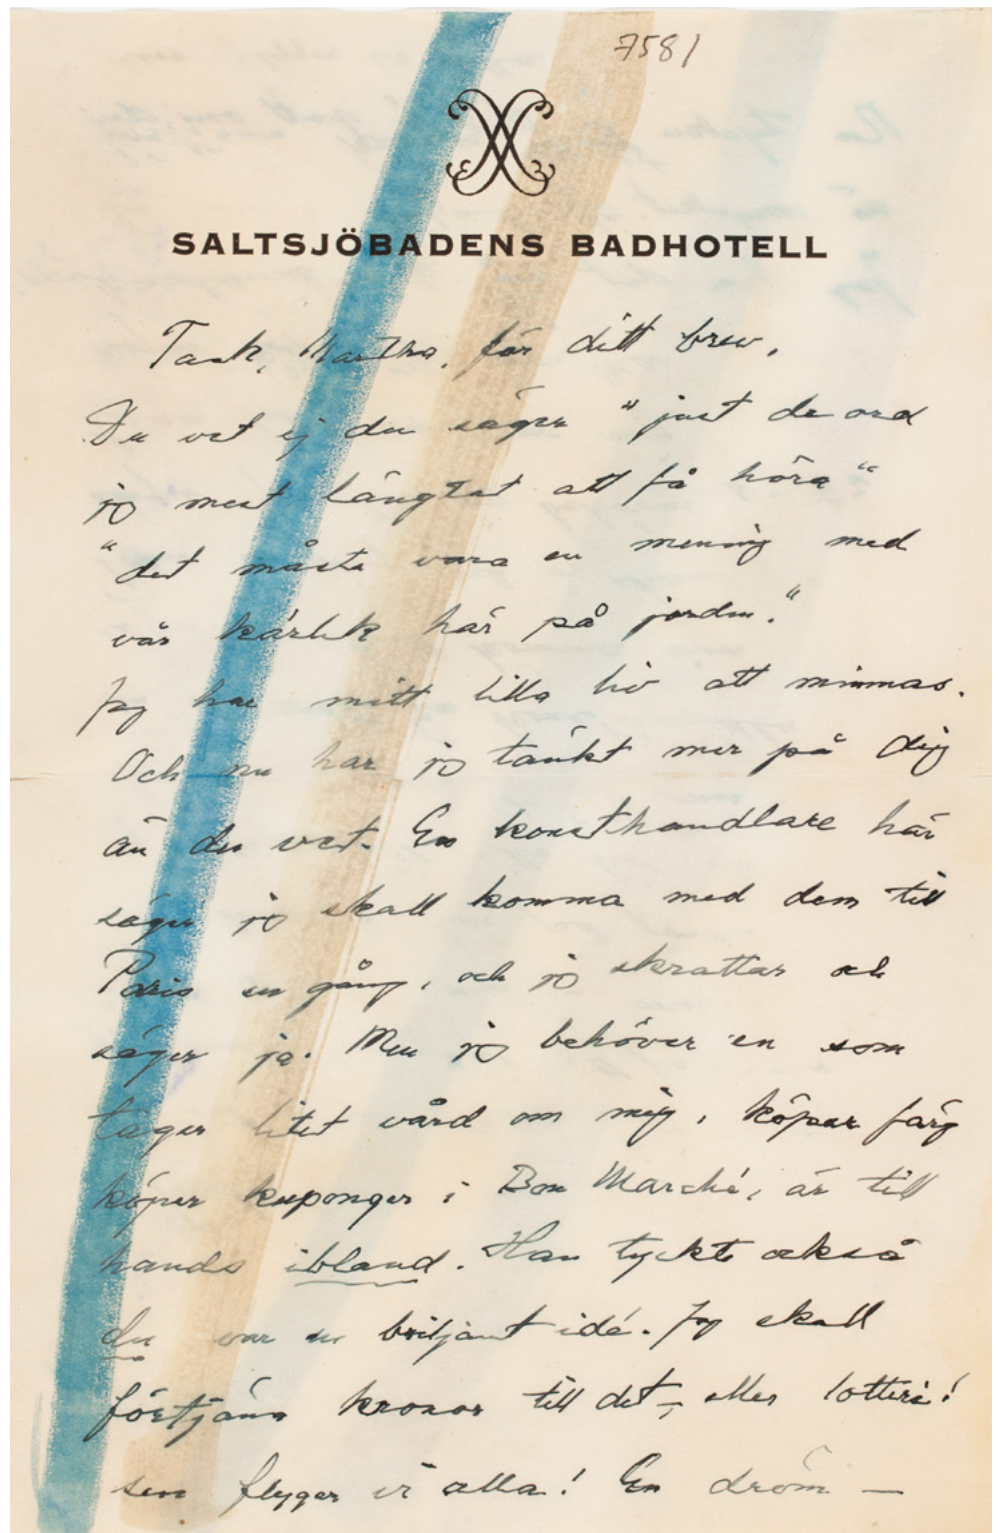 7581
SALTSJÖBADENS BADHOTELL
Tack, Martha, för ditt brev,
Du vet ej du säger "just de ord
jag mest längtat att få höra"
"det måste vara en mening med
vår kärlek här på jorden."
Jag har mitt lilla liv att minnas.
Och nu har jag tänkt mer på dig
än du vet. En konsthandlare här
säger jag skall komma med dem till
Paris en gång, och jag skrattar och
säger ja. Men jag behöver en som
tager litet vård om mig, köper färg
köper kuponger i Bon Marché, är till
hands ibland. Han tyckte också
du var en briljant idé. Jag skall
förtjäna kronor till det –, eller lotteri!
sen flyger vi alla! En dröm –